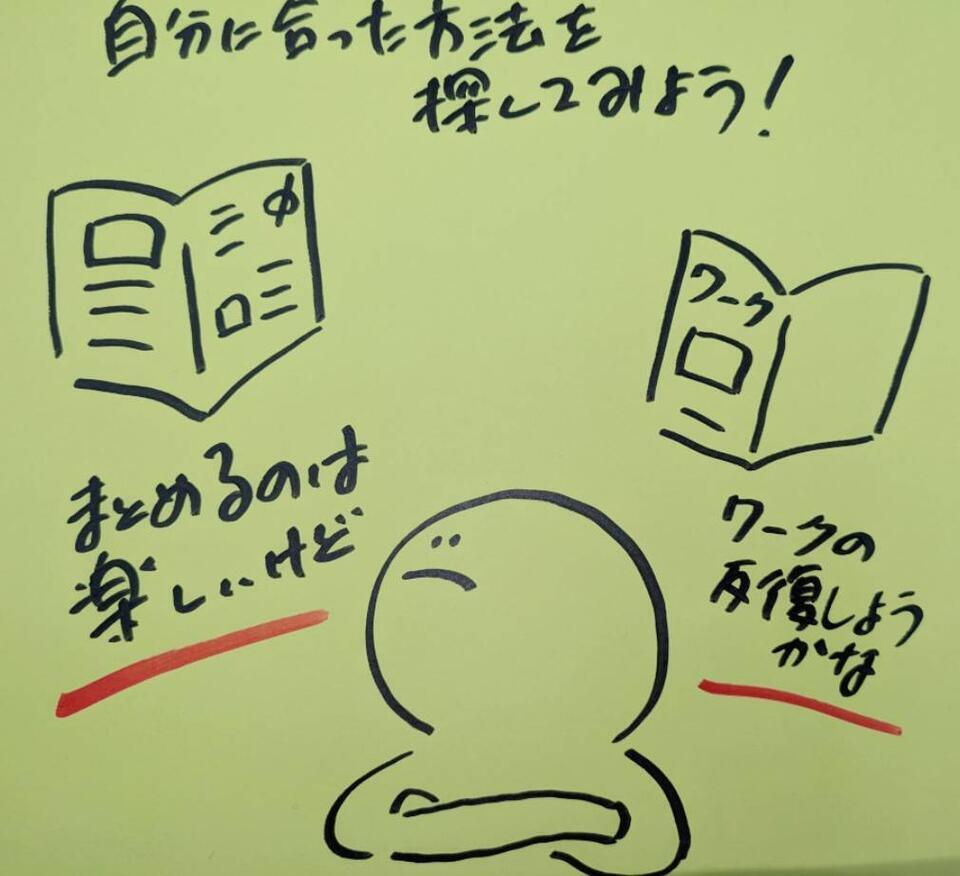 自分に合った方法を
探してみよう!
ワーク
まとめるのは
楽しいけど
ワークの
反復しよう
かな